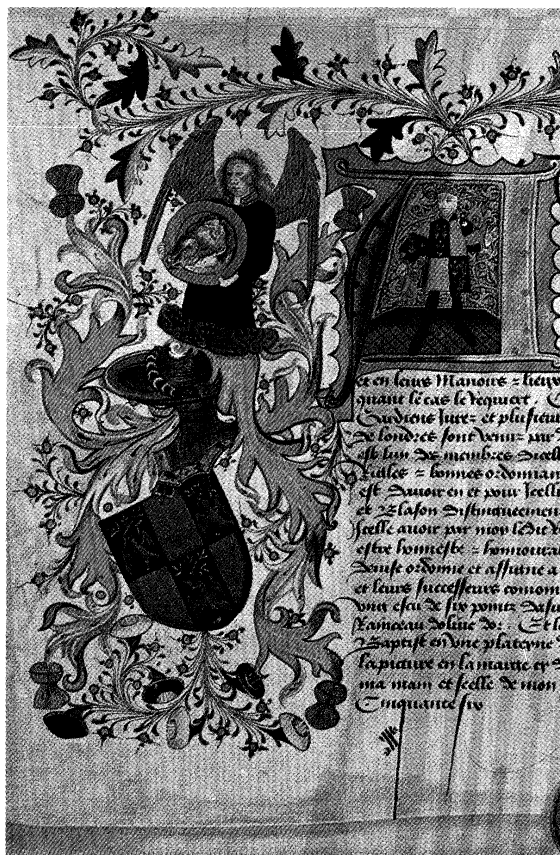 et en leurs Manoirs = lieux
quant le cas le requiert .
Gardiens Jure= et plusieur
de londres sont venu= par
est lun des membres dicell
= bonnes ordonnan
est davoir en et pour Jcell
et Blason distinguement
Jcelle avoir par moy ledit
estre honneste = honnoura
ordonne et assigne a
et leurs successeurs
ung escu de six pointz dasu
Rameau dolive dor . Et
Baptist en une plateyne
la picture en la marge cy
ma main et scelle de mon
Cinquante six